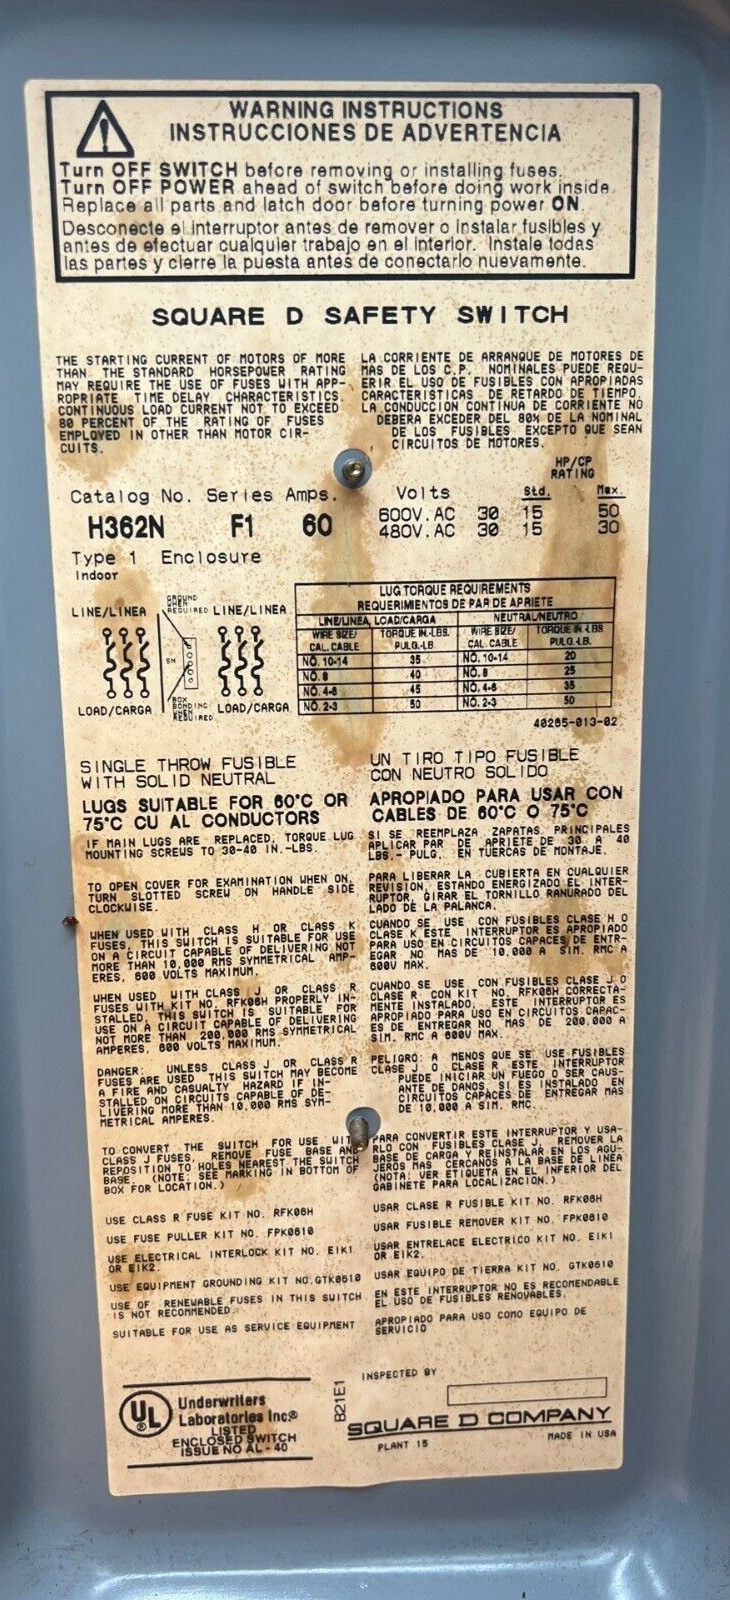 WARNING INSTRUCTIONS
INSTRUCCIONES DE ADVERTENCIA
Turn OFF SWITCH before removing or installing fuses.
Turn OFF POWER ahead of switch before doing work inside.
Replace all parts and latch door before turning power ON.
Desconecte el interruptor antes de remover o instalar fusibles y
antes de efectuar cualquier trabajo en el interior. Instale todas
las partes y cierre la puesta antes de conectarlo nuevamente.
SQUARE D SAFETY SWITCH
THE STARTING CURRENT OF MOTORS OF MORE
THAN THE STANDARD HORSEPOWER RATING
MAY REQUIRE THE USE OF FUSES WITH APP-
ROPRIATE TIME DELAY CHARACTERISTICS.
CONTINUOUS LOAD CURRENT NOT TO EXCEED
80 PERCENT OF THE RATING OF FUSES
EMPLOYED IN OTHER THAN MOTOR CIR-
CUITS.
LA CORRIENTE DE ARRANQUE DE MOTORES DE
MAS DE LOS C.P. NOMINALES PUEDE REQU-
ERIR EL USO DE FUSIBLES CON APROPIADAS
CARACTERISTICAS DE RETARDO DE TIEMPO.
LA CONDUCCION CONTINUA DE CORRIENTE NO
DEBERA EXCEDER DEL 80% DE LA NOMINAL
DE LOS FUSIBLES EXCEPTO QUE SEAN
CIRCUITOS DE MOTORES.
HP/CP
RATING
Catalog No. Series Amps. Volts Std. Max.
H362N F1 60 600V. AC 30 15 50
480V. AC 30 15 30
Type 1 Enclosure
Indoor
LINE/LINEA
GROUND
WHEN
REQUIRED
LINE/LINEA
SN
LOAD/CARGA
BOX
BONDING
WHEN
REQUIRED
LOAD/CARGA
LUG TORQUE REQUIREMENTS
REQUERIMIENTOS DE PAR DE APRIETE
LINE/LINEA, LOAD/CARGA NEUTRAL/NEUTRO
WIRE SIZE/ TORQUE IN.-LBS. WIRE SIZE/ TORQUE IN.-LBS
CAL. CABLE PULG.-LB. CAL. CABLE PULG.-LB.
NO. 10-14 35 NO. 10-14 20
NO. 8 40 NO. 8 25
NO. 4-6 45 NO. 4-6 35
NO. 2-3 50 NO. 2-3 50
40265-013-02
SINGLE THROW FUSIBLE
WITH SOLID NEUTRAL
UN TIRO TIPO FUSIBLE
CON NEUTRO SOLIDO
LUGS SUITABLE FOR 60°C OR
75°C CU AL CONDUCTORS
APROPIADO PARA USAR CON
CABLES DE 60°C O 75°C
IF MAIN LUGS ARE REPLACED, TORQUE LUG
MOUNTING SCREWS TO 30-40 IN.-LBS.
SI SE REEMPLAZA ZAPATAS PRINCIPALES
APLICAR PAR DE APRIETE DE 30 A 40
LBS.- PULG. EN TUERCAS DE MONTAJE.
TO OPEN COVER FOR EXAMINATION WHEN ON,
TURN SLOTTED SCREW ON HANDLE SIDE
CLOCKWISE.
PARA LIBERAR LA CUBIERTA EN CUALQUIER
REVISION, ESTANDO ENERGIZADO EL INTER-
RUPTOR, GIRAR EL TORNILLO RANURADO DEL
LADO DE LA PALANCA.
WHEN USED WITH CLASS H OR CLASS K
FUSES, THIS SWITCH IS SUITABLE FOR USE
ON A CIRCUIT CAPABLE OF DELIVERING NOT
MORE THAN 10,000 RMS SYMMETRICAL AMP-
ERES, 600 VOLTS MAXIMUM.
CUANDO SE USE CON FUSIBLES CLASE H O
CLASE K ESTE INTERRUPTOR ES APROPIADO
PARA USO EN CIRCUITOS CAPACES DE ENTR-
EGAR NO MAS DE 10,000 A SIM. RMC A
600V MAX.
WHEN USED WITH CLASS J OR CLASS R
FUSES WITH KIT NO. RFK06H PROPERLY IN-
STALLED THIS SWITCH IS SUITABLE FOR
USE ON A CIRCUIT CAPABLE OF DELIVERING
NOT MORE THAN 200,000 RMS SYMMETRICAL
AMPERES, 600 VOLTS MAXIMUM.
CUANDO SE USE CON FUSIBLES CLASE J O
CLASE R CON KIT NO. RFK06H CORRECTA-
MENTE INSTALADO, ESTE INTERRUPTOR ES
APROPIADO PARA USO EN CIRCUITOS CAPAC-
ES DE ENTREGAR NO MAS DE 200,000 A
SIM. RMC A 600V MAX.
DANGER: UNLESS CLASS J OR CLASS R
FUSES ARE USED THIS SWITCH MAY BECOME
A FIRE AND CASUALTY HAZARD IF IN-
STALLED ON CIRCUITS CAPABLE OF DE-
LIVERING MORE THAN 10,000 RMS SYM-
METRICAL AMPERES.
PELIGRO: A MENOS QUE SE USE FUSIBLES
CLASE J O CLASE R ESTE INTERRUPTOR
PUEDE INICIAR UN FUEGO O SER CAUS-
ANTE DE DANOS, SI ES INSTALADO EN
CIRCUITOS CAPACES DE ENTREGAR MAS
DE 10,000 A SIM. RMC.
TO CONVERT THE SWITCH FOR USE WITH
CLASS J FUSES, REMOVE FUSE BASE AND
REPOSITION TO HOLES NEAREST THE SWITCH
BASE. (NOTE: SEE MARKING IN BOTTOM OF
BOX FOR LOCATION.)
PARA CONVERTIR ESTE INTERRUPTOR Y USA-
RLO CON FUSIBLES CLASE J, REMOVER LA
BASE DE CARGA Y REINSTALAR EN LOS AGU-
JEROS MAS CERCANOS A LA BASE DE LINEA
(NOTA: VER ETIQUETA EN EL INFERIOR DEL
GABINETE PARA LOCALIZACION.)
USE CLASS R FUSE KIT NO. RFK06H
USAR CLASE R FUSIBLE KIT NO. RFK06H
USE FUSE PULLER KIT NO. FPK0610
USAR FUSIBLE REMOVER KIT NO. FPK0610
USE ELECTRICAL INTERLOCK KIT NO. EIK1
OR EIK2.
USAR ENTRELACE ELECTRICO KIT NO. EIK1
OR EIK2.
USE EQUIPMENT GROUNDING KIT NO.GTK0610
USAR EQUIPO DE TIERRA KIT NO. GTK0610
USE OF RENEWABLE FUSES IN THIS SWITCH
IS NOT RECOMMENDED.
EN ESTE INTERRUPTOR NO ES RECOMENDABLE
EL USO DE FUSIBLES RENOVABLES.
SUITABLE FOR USE AS SERVICE EQUIPMENT
APROPIADO PARA USO COMO EQUIPO DE
SERVICIO
UL
Underwriters
Laboratories Inc.®
LISTED
ENCLOSED SWITCH
ISSUE NO AL-40
B21E1
INSPECTED BY
SQUARE D COMPANY
PLANT 15 MADE IN USA